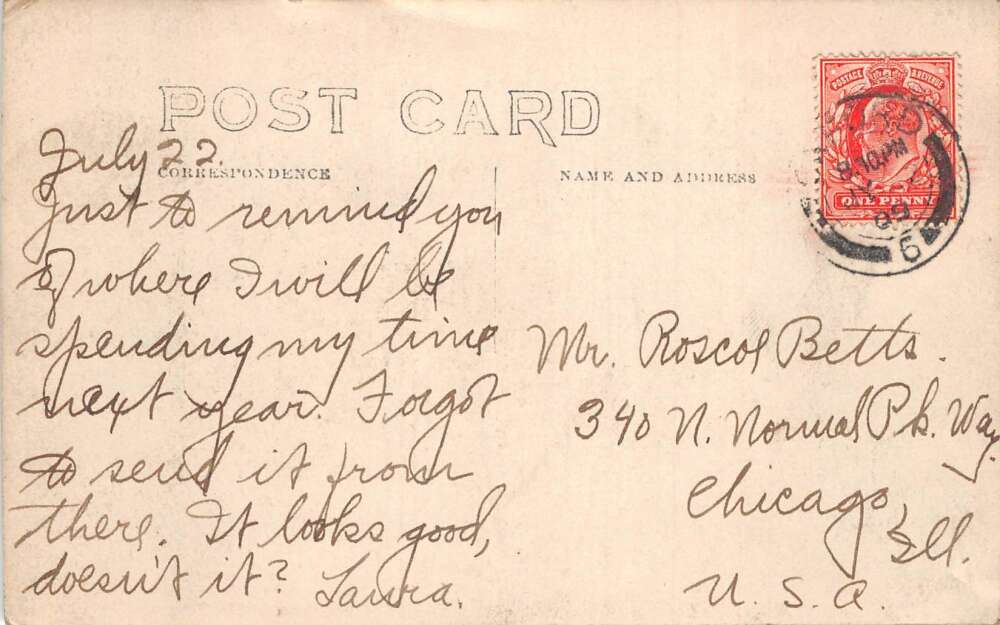 POST CARD
CORRESPONDENCE
NAME AND ADDRESS
POSTAGE & REVENUE
ONE PENNY
10.PM
09
6
July 22.
Just to remind you
of where I will be
spending my time
next year. Forgot
to send it from
there. It looks good,
doesn't it? Laura.
Mr. Roscoe Betts.
340 N. Normal Pk. Way.
Chicago,
Ill.
U. S. A.